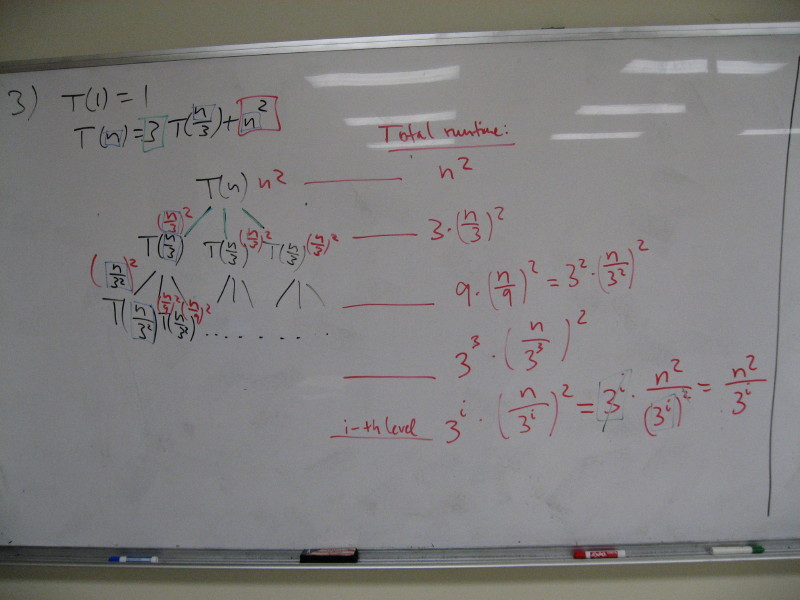 3) T(1) = 1
T(n) = 3 T(n/3) + n^2
Total runtime:
T(n) n^2 n^2
(n/3)^2 (n/3)^2 (n/3)^2
T(n/3) T(n/3) T(n/3) 3·(n/3)^2
(n/3^2)^2 (n/9)^2 (n/9)^2
T(n/3^2) T(n/3^2) ....... 9·(n/9)^2 = 3^2·(n/3^2)^2
3^3·(n/3^3)^2
i-th level 3^i·(n/3^i)^2 = 3^i·n^2/(3^i)^2 = n^2/3^i